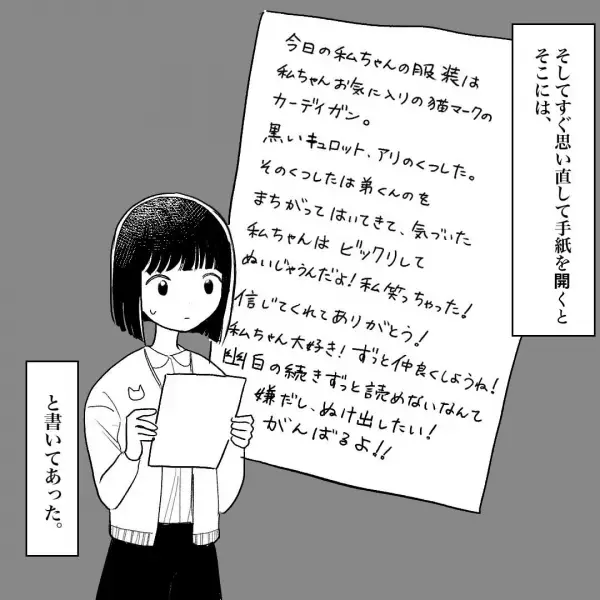 そしてすぐ思い直して手紙を開くと
そこには、
今日の私ちゃんの服装は
私ちゃんお気に入りの猫マークの
カーディガン。
黒いキュロット、アリのくつした。
そのくつしたは弟くんのを
まちがってはいてきて、気づいた
私ちゃんは ビックリして
ぬいじゃうんだよ!私笑っちゃった!
信じてくれてありがとう!
私ちゃん大好き!ずっと仲良くしようね!
幽白の続きずっと読めないなんて
嫌だし、ぬけ出したい!
がんばるよ!!
と書いてあった。